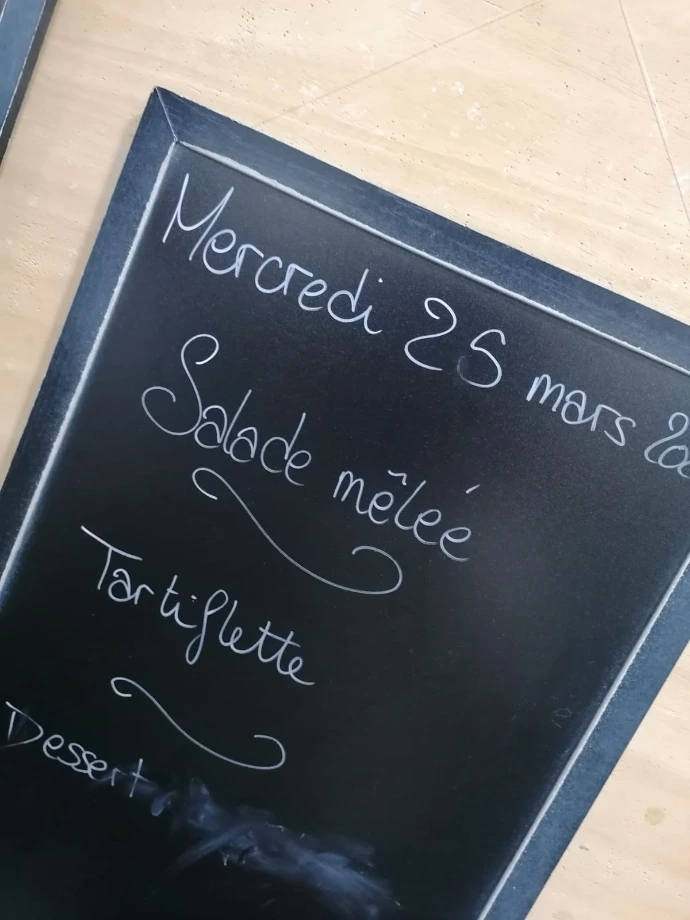 Mercredi 25 mars
Salade mêleé
Tartiflette
Dessert